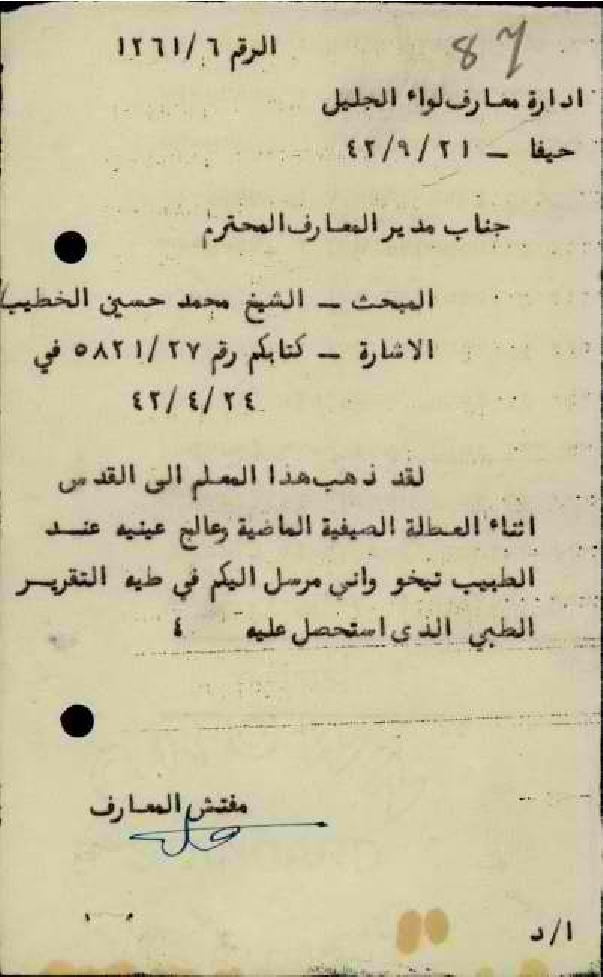 87
الرقم ١٢٦١/٦
ادارة معارف لواء الجليل
حيفا – ٤٢/٩/٢١
جناب مدير المعارف المحترم
المبحث – الشيخ محمد حسين الخطيب
الاشارة – كتابكم رقم ٥٨٢١/٢٧ في
٤٢/٤/٢٤
لقد ذهب هذا المعلم الى القدس
اثناء العطلة الصيفية الماضية وعالج عينيه عند
الطبيب تيخو واني مرسل اليكم في طيه التقرير
الطبي الذى استحصل عليه ٤
مفتش المعارف
ا/د